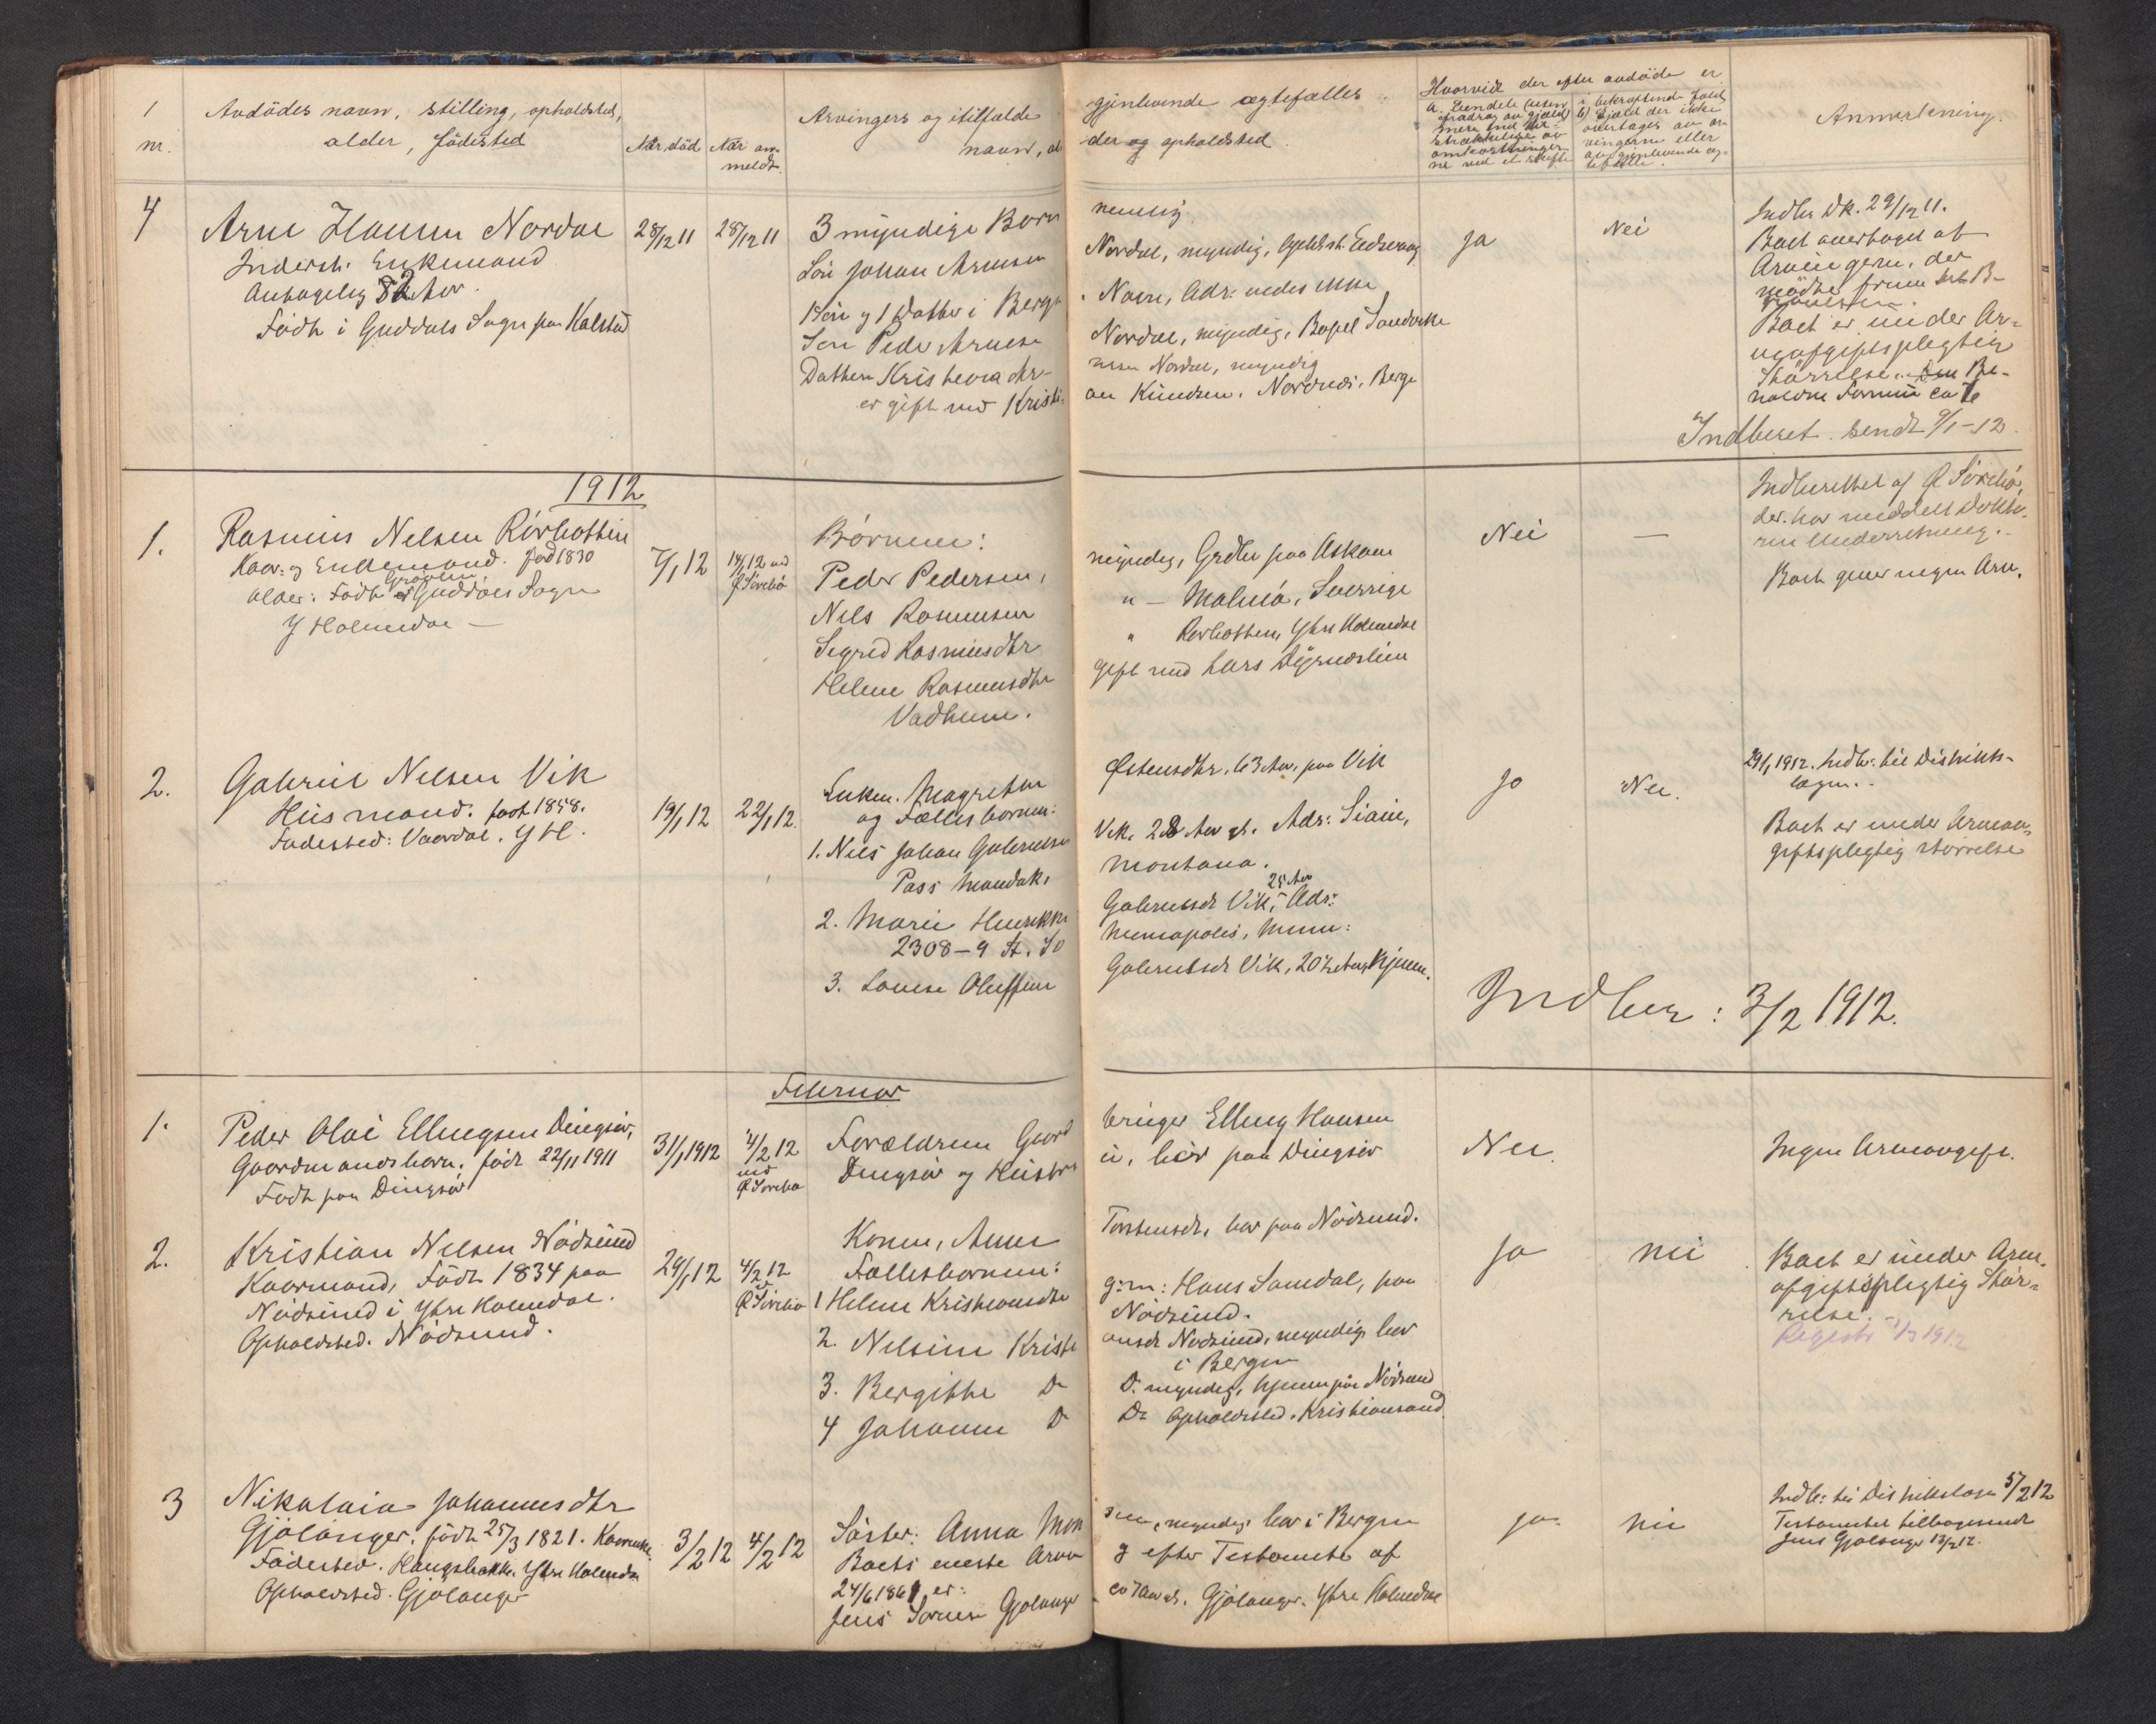 1
nr.
Avdödes navn, stilling, opholdsted,
alder, födested
Når död
Når an-
meldt.
Arvingers og itilfælde
navn, al
gjenlevende ægtefælles
der og opholdsted.
Hvorvidt der efter avdöde er
A. Eiendele (uten
fradrag av gjæld)
mere end til-
strækkelige av
omkostninger
ne ved et skifte
i bekræftende fald
b) Gjæld der ikke
overtages av ar
vingerne eller
av gjenlevende æg-
tefælle.
Anmerkning.
4
Arne Nordal
Inderst. Enkemand
Antagelig 82 Aar.
Födt i Guddals Sogn paa Kalstad
28/12 11
28/12 11
3 myndige Börn
Sön Johan Arnesen
1 Sön og 1 Datter i Bergen
Sön Peder Arnesen
Datter Kristiana Ar-
er gift med Kristi
nemlig
Nordal, myndig, Opholdst. Eidsvaag
Navn, Adr. vides ikke
Nordal, myndig, Sandvike
nsen Nordal, myndig
an Knudsen. Nordnes. Berge
Ja
Nei
Indbr Dk. 29/12 11.
Boet overtaget af
Arvingerne, der
mödte frem
Boet er under Ar-
veafgiftspligtig
Störrelse. Be-
holdne Formue ca
Indberet. sendt 9/1-12.
1912
1.
Rasmus Nielsen Rörbotten
Kaar- og Enkemand. föd 1830
alder: Födt Guddals Sogn
Y Holmedal —
7/1 12
14/1 12 ved
Ø Sörebö
Börnene:
Peder Pedersen,
Nils Rasmussen
Sigrid Rasmusdtr
Helene Rasmusdtr
Vadheim.
myndig, Grdbr paa Askøen
" — Malmö, Sverrige
" Rörbotten, Ytre Holmedal
gift med Lars Dyrneslien
Nei
—
Indberettet af Ø Sörebö,
der har meddelt
Underretning.
Boet giver ingen Arv.
2.
Gabriel Nielsen Vik
Husmand. födt 1858.
Födested: Vaardal. Y Hl.
19/1 12
22/1 12.
Enken. Magrethe
og Fællesbörnene:
1. Nils Johan Gabrielsen
Pass
2. Marie Henrikke
2308 — 9 St. So
3. Lovise Oluffine
Østensdtr. 63 Aar, paa Vik
Vik. 28 Aar gl. Adr:
Montana.
25 Aar
Gabrielsdtr Vik, Adr:
Minneapolis, Minn:
Gabrielsdtr Vik, 20 ½ Aar, Hjemme.
Ja
Nei.
29/1 1912. Indbr. til Distrikts-
lægen.
Boet er under Arveav-
giftspligtig störrelse
Indber: 3/2 1912.
Februar
1.
Peder Olai Ellingsen Dingsör,
Gaardmandsbarn. födt 22/11 1911
Födt paa Dingsör
31/1 1912
4/2 12
ved
Ø Sörebö
Forældrene Gaard
Dingsör og Hustru
bruger Elling Hansen
bor paa Dingsör
Nei.
Ingen Arveavgift.
2.
Kristian Nielsen Nödsund
Kaarmand, Födt 1834 paa
Nödsund i Ytre Holmedal.
Opholdsted. Nödsund.
29/1 12
4/2 12
Ø Sörebö
Konen, Anne
Fællesbörnene:
1 Helene Kristiansdtr
2. Nelsine Kristi
3. Bergitte Do
4 Johanne Do
Torstensdtr, bor paa Nödsund.
g:m: Hans Sandal, paa
Nödsund.
ansdtr Nödsund, myndig, bor
i Bergen
Do myndig, hjemme paa Nödsund
Do Opholdsted. Kristiansand.
Ja
nei
Boet er under Arve-
afgiftspligtig Stör-
relse. —
Registr 1912
3
Nikolaia Johannesdtr
Gjölanger. födt 25/3 1821. Kaarenke.
Födested. Ytre Holmedal
Opholdsted. Gjölanger
3/2 12
4/2 12
Söster: Anna Mon
Boets eneste Arvin
24/6 1861 er:
Jens Gjölanger
sen, myndig, bor i Bergen
g efter Testamente af
Gjölanger. Ytre Holmedal
ja
nei
Indb: til Distriktslægen 5/2 12
Testamentet tilbagesendt
Jens Gjölanger 13/2 12.